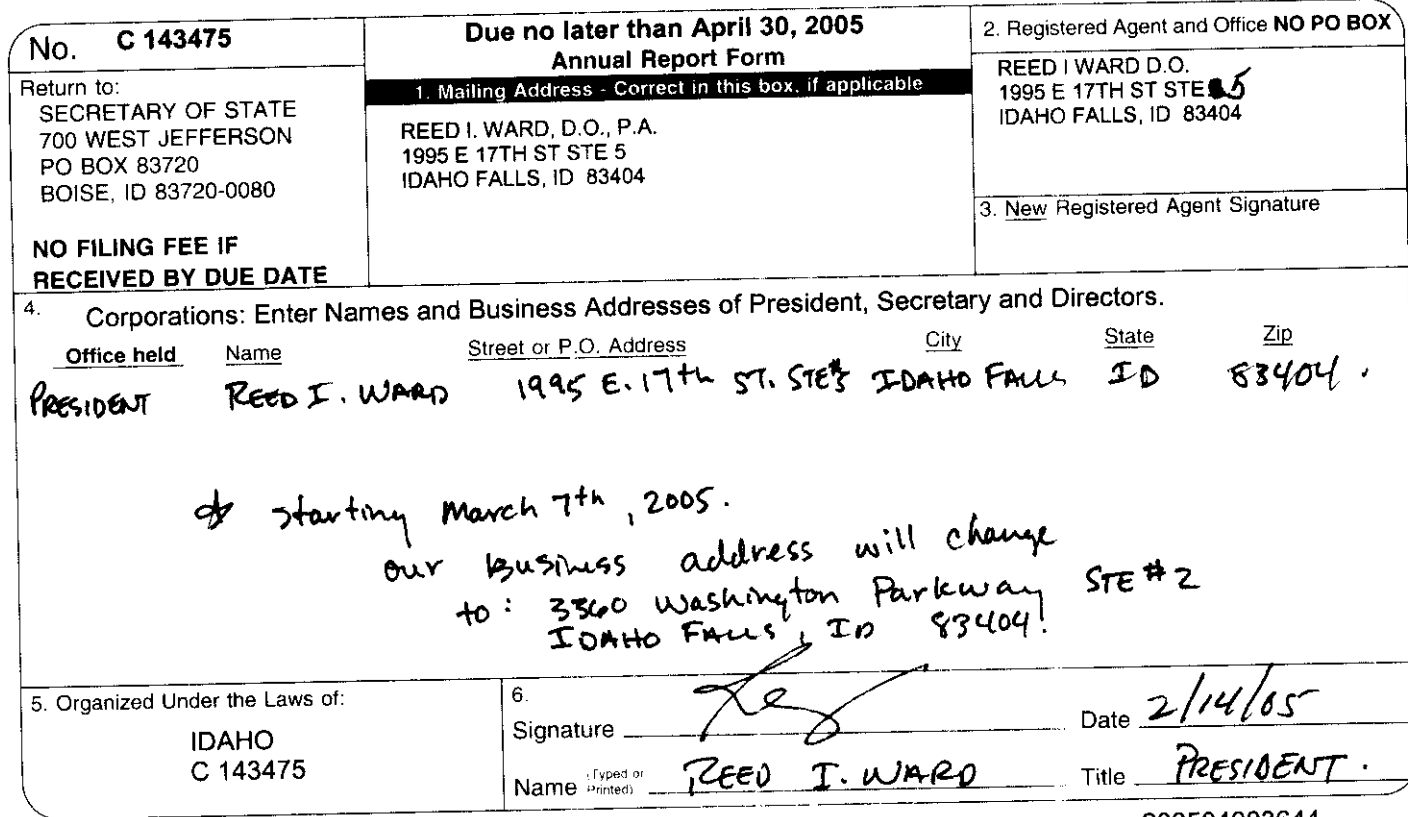 No. C 143475
Return to:
SECRETARY OF STATE
700 WEST JEFFERSON
PO BOX 83720
BOISE, ID 83720-0080
NO FILING FEE IF
RECEIVED BY DUE DATE
Due no later than April 30, 2005
Annual Report Form
1. Mailing Address - Correct in this box, if applicable
REED I. WARD, D.O., P.A.
1995 E 17TH ST STE 5
IDAHO FALLS, ID 83404
2. Registered Agent and Office NO PO BOX
REED I WARD D.O.
1995 E 17TH ST STE 5
IDAHO FALLS, ID 83404
3. New Registered Agent Signature
4. Corporations: Enter Names and Business Addresses of President, Secretary and Directors.
Office held Name Street or P.O. Address City State Zip
PRESIDENT REED I. WARD 1995 E. 17th ST. STE# IDAHO FALLS ID 83404.
starting March 7th, 2005.
our Business address will change
to: Washington Parkway STE # 2
IDAHO FALLS, ID 83404!
5. Organized Under the Laws of:
IDAHO
C 143475
6.
Signature Date 2/14/05
Name (Typed or Printed) REED I. WARD Title PRESIDENT.